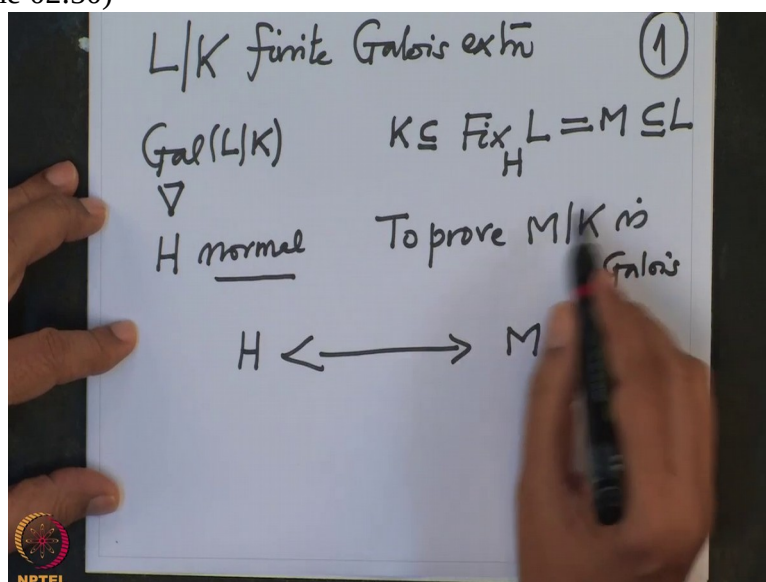 02:30)
L|K finite Galois extn ①
Gal(L|K) K ⊆ Fix_H L = M ⊆ L
▽
H normal To prove M|K is Galois
H ⟷ M
NPTEL